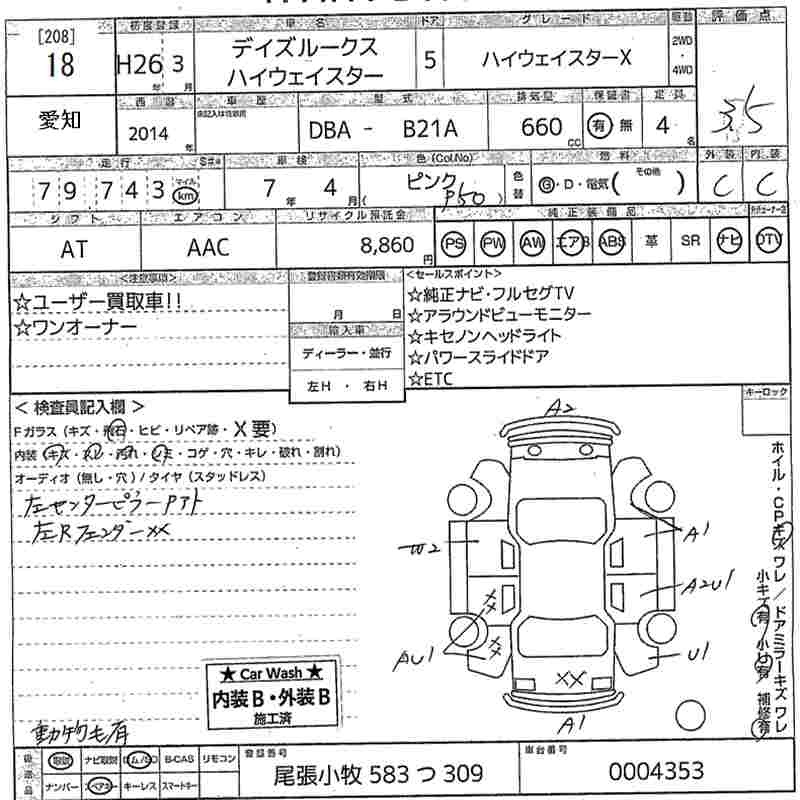 [208]
18
初度登録
車名
ドア
グレード
駆動
評価点
H26 3
年 月
デイズルークス
ハイウェイスター
5
ハイウェイスターX
2WD
・
4WD
3.5
愛知
西暦
車歴
型式
排気量
保証書
定員
2014 年
DBA - B21A
660 cc
有 無
4 名
走行
車検
色 (Col.No)
燃料
外装
内装
79,743
マイル
km
7年 4月
ピンク
( P50 )
色替
G・D・電気( その他 )
C
C
シフト
エアコン
リサイクル預託金
純正装備品
AT
AAC
8,860 円
PS
PW
AW
エアB
ABS
革
SR
ナビ
DTV
<注意事項>
☆ユーザー買取車!!
☆ワンオーナー
登録書類有効期限
月 日
輸入車
ディーラー・並行
左H ・ 右H
<セールスポイント>
☆純正ナビ・フルセグTV
☆アラウンドビューモニター
☆キセノンヘッドライト
☆パワースライドドア
☆ETC
キーロック
< 検査員記入欄 >
Fガラス (キズ・飛石・ヒビ・リペア跡・X要)
内装 (キズ・スレ・汚れ・シミ・コゲ・穴・キレ・破れ・割れ)
オーディオ (無し・穴) / タイヤ (スタッドレス)
左センターピラーアト
左Rフェンダー××
動物毛有
A2
W2
A1
A2U1
AU1
U1
××
××
××
A1
ホイル・CPキズ ワレ / ドアミラーキズ ワレ
小キズ有 小U有 補修有
★ Car Wash ★
内装B・外装B
施工済
後送品
取説
ナビ取説
ロム/SD
B-CAS
リモコン
ナンバー
スペアキー
キーレス
スマートキー
登録番号
尾張小牧 583 つ 309
車台番号
0004353